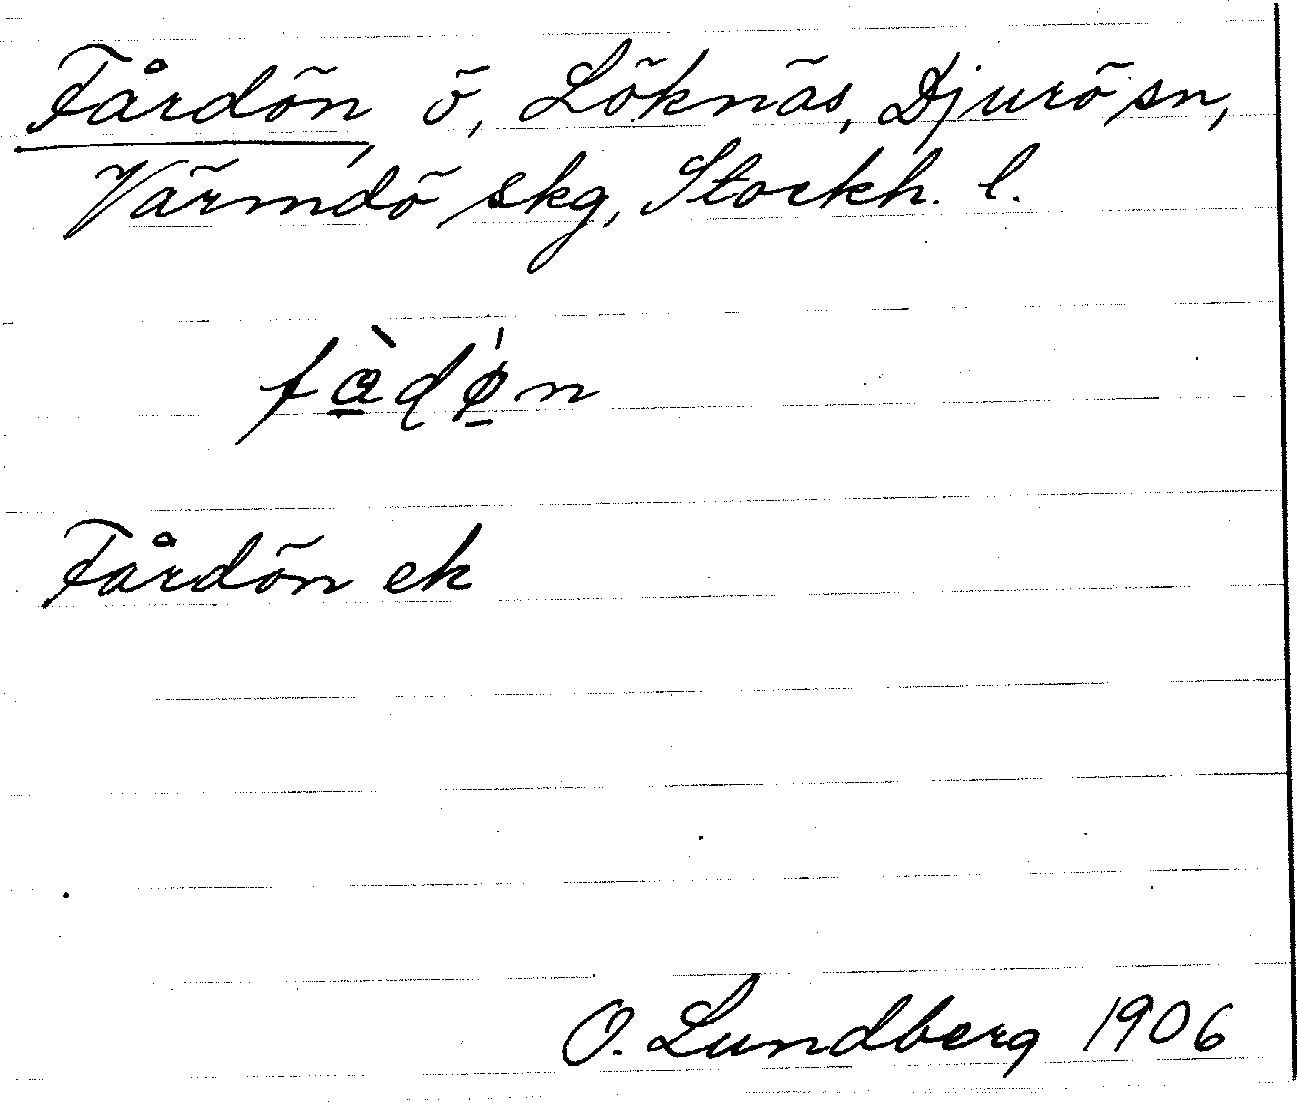 Fårdön, ö, Löknäs, Djurö sn,
Värmdö skg, Stockh. l.
fàdø̍n
Fårdön ek
O. Lundberg 1906